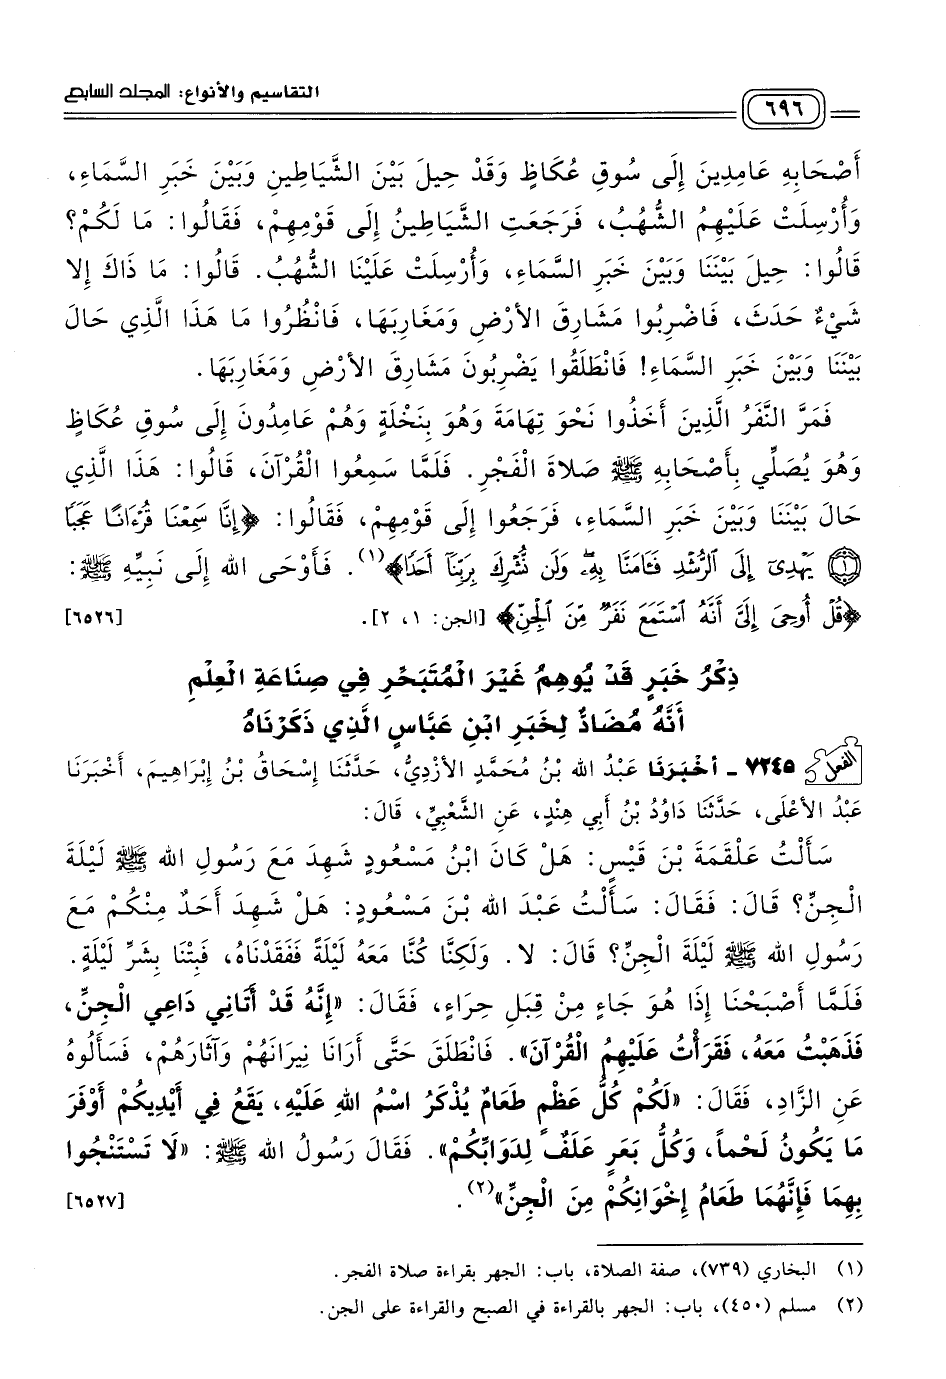 التقاسيم والأنواع: المجلد السابع
٦٩٦
أَصْحَابِهِ عَامِدِينَ إِلَى سُوقِ عُكَاظٍ وَقَدْ حِيلَ بَيْنَ الشَّيَاطِينِ وَبَيْنَ خَبَرِ السَّمَاءِ،
وَأُرْسِلَتْ عَلَيْهِمُ الشُّهُبُ، فَرَجَعَتِ الشَّيَاطِينُ إِلَى قَوْمِهِمْ، فَقَالُوا: مَا لَكُمْ؟
قَالُوا: حِيلَ بَيْنَنَا وَبَيْنَ خَبَرِ السَّمَاءِ، وَأُرْسِلَتْ عَلَيْنَا الشُّهُبُ. قَالُوا: مَا ذَاكَ إِلا
شَيْءٌ حَدَثَ، فَاضْرِبُوا مَشَارِقَ الأَرْضِ وَمَغَارِبَهَا، فَانْظُرُوا مَا هَذَا الَّذِي حَالَ
بَيْنَنَا وَبَيْنَ خَبَرِ السَّمَاءِ! فَانْطَلَقُوا يَضْرِبُونَ مَشَارِقَ الأَرْضِ وَمَغَارِبَهَا.
فَمَرَّ النَّفَرُ الَّذِينَ أَخَذُوا نَحْوَ تِهَامَةَ وَهُوَ بِنَخْلَةٍ وَهُمْ عَامِدُونَ إِلَى سُوقِ عُكَاظٍ
وَهُوَ يُصَلِّي بِأَصْحَابِهِ ﷺ صَلاةَ الْفَجْرِ. فَلَمَّا سَمِعُوا الْقُرْآنَ، قَالُوا: هَذَا الَّذِي
حَالَ بَيْنَنَا وَبَيْنَ خَبَرِ السَّمَاءِ، فَرَجَعُوا إِلَى قَوْمِهِمْ، فَقَالُوا: ﴿إِنَّا سَمِعْنَا قُرْءَانًا عَجَبًا
۝١ يَهْدِىٓ إِلَى ٱلرُّشْدِ فَـَٔامَنَّا بِهِۦۖ وَلَن نُّشْرِكَ بِرَبِّنَآ أَحَدًا﴾(١). فَأَوْحَى الله إِلَى نَبِيِّهِ ﷺ:
﴿قُلْ أُوحِىَ إِلَىَّ أَنَّهُ ٱسْتَمَعَ نَفَرٌ مِّنَ ٱلْجِنِّ﴾ [الجن: ١، ٢]. [٦٥٢٦]
ذِكْرُ خَبَرٍ قَدْ يُوهِمُ غَيْرَ الْمُتَبَحِّرِ فِي صِنَاعَةِ الْعِلْمِ
أَنَّهُ مُضَادٌّ لِخَبَرِ ابْنِ عَبَّاسٍ الَّذِي ذَكَرْنَاهُ
الفعل ٧٢٤٥ - أَخْبَرَنَا عَبْدُ الله بْنُ مُحَمَّدٍ الأَزْدِيُّ، حَدَّثَنَا إِسْحَاقُ بْنُ إِبْرَاهِيمَ، أَخْبَرَنَا
عَبْدُ الأَعْلَى، حَدَّثَنَا دَاوُدُ بْنُ أَبِي هِنْدٍ، عَنِ الشَّعْبِيِّ، قَالَ:
سَأَلْتُ عَلْقَمَةَ بْنَ قَيْسٍ: هَلْ كَانَ ابْنُ مَسْعُودٍ شَهِدَ مَعَ رَسُولِ الله ﷺ لَيْلَةَ
الْجِنِّ؟ قَالَ: فَقَالَ: سَأَلْتُ عَبْدَ الله بْنَ مَسْعُودٍ: هَلْ شَهِدَ أَحَدٌ مِنْكُمْ مَعَ
رَسُولِ الله ﷺ لَيْلَةَ الْجِنِّ؟ قَالَ: لا. وَلَكِنَّا كُنَّا مَعَهُ لَيْلَةً فَفَقَدْنَاهُ، فَبِتْنَا بِشَرِّ لَيْلَةٍ.
فَلَمَّا أَصْبَحْنَا إِذَا هُوَ جَاءٍ مِنْ قِبَلِ حِرَاءٍ، فَقَالَ: «إِنَّهُ قَدْ أَتَانِي دَاعِي الْجِنِّ،
فَذَهَبْتُ مَعَهُ، فَقَرَأْتُ عَلَيْهِمُ الْقُرْآنَ». فَانْطَلَقَ حَتَّى أَرَانَا نِيرَانَهُمْ وَآثَارَهُمْ، فَسَأَلُوهُ
عَنِ الزَّادِ، فَقَالَ: «لَكُمْ كُلُّ عَظْمٍ طَعَامٌ يُذْكَرُ اسْمُ اللهِ عَلَيْهِ، يَقَعُ فِي أَيْدِيكُمْ أَوْفَرَ
مَا يَكُونُ لَحْماً، وَكُلُّ بَعَرٍ عَلَفٌ لِدَوَابِّكُمْ». فَقَالَ رَسُولُ الله ﷺ: «لَا تَسْتَنْجُوا
بِهِمَا فَإِنَّهُمَا طَعَامُ إِخْوَانِكُمْ مِنَ الْجِنِّ»(٢). [٦٥٢٧]
(١) البخاري (٧٣٩)، صفة الصلاة، باب: الجهر بقراءة صلاة الفجر.
(٢) مسلم (٤٥٠)، باب: الجهر بالقراءة في الصبح والقراءة على الجن.